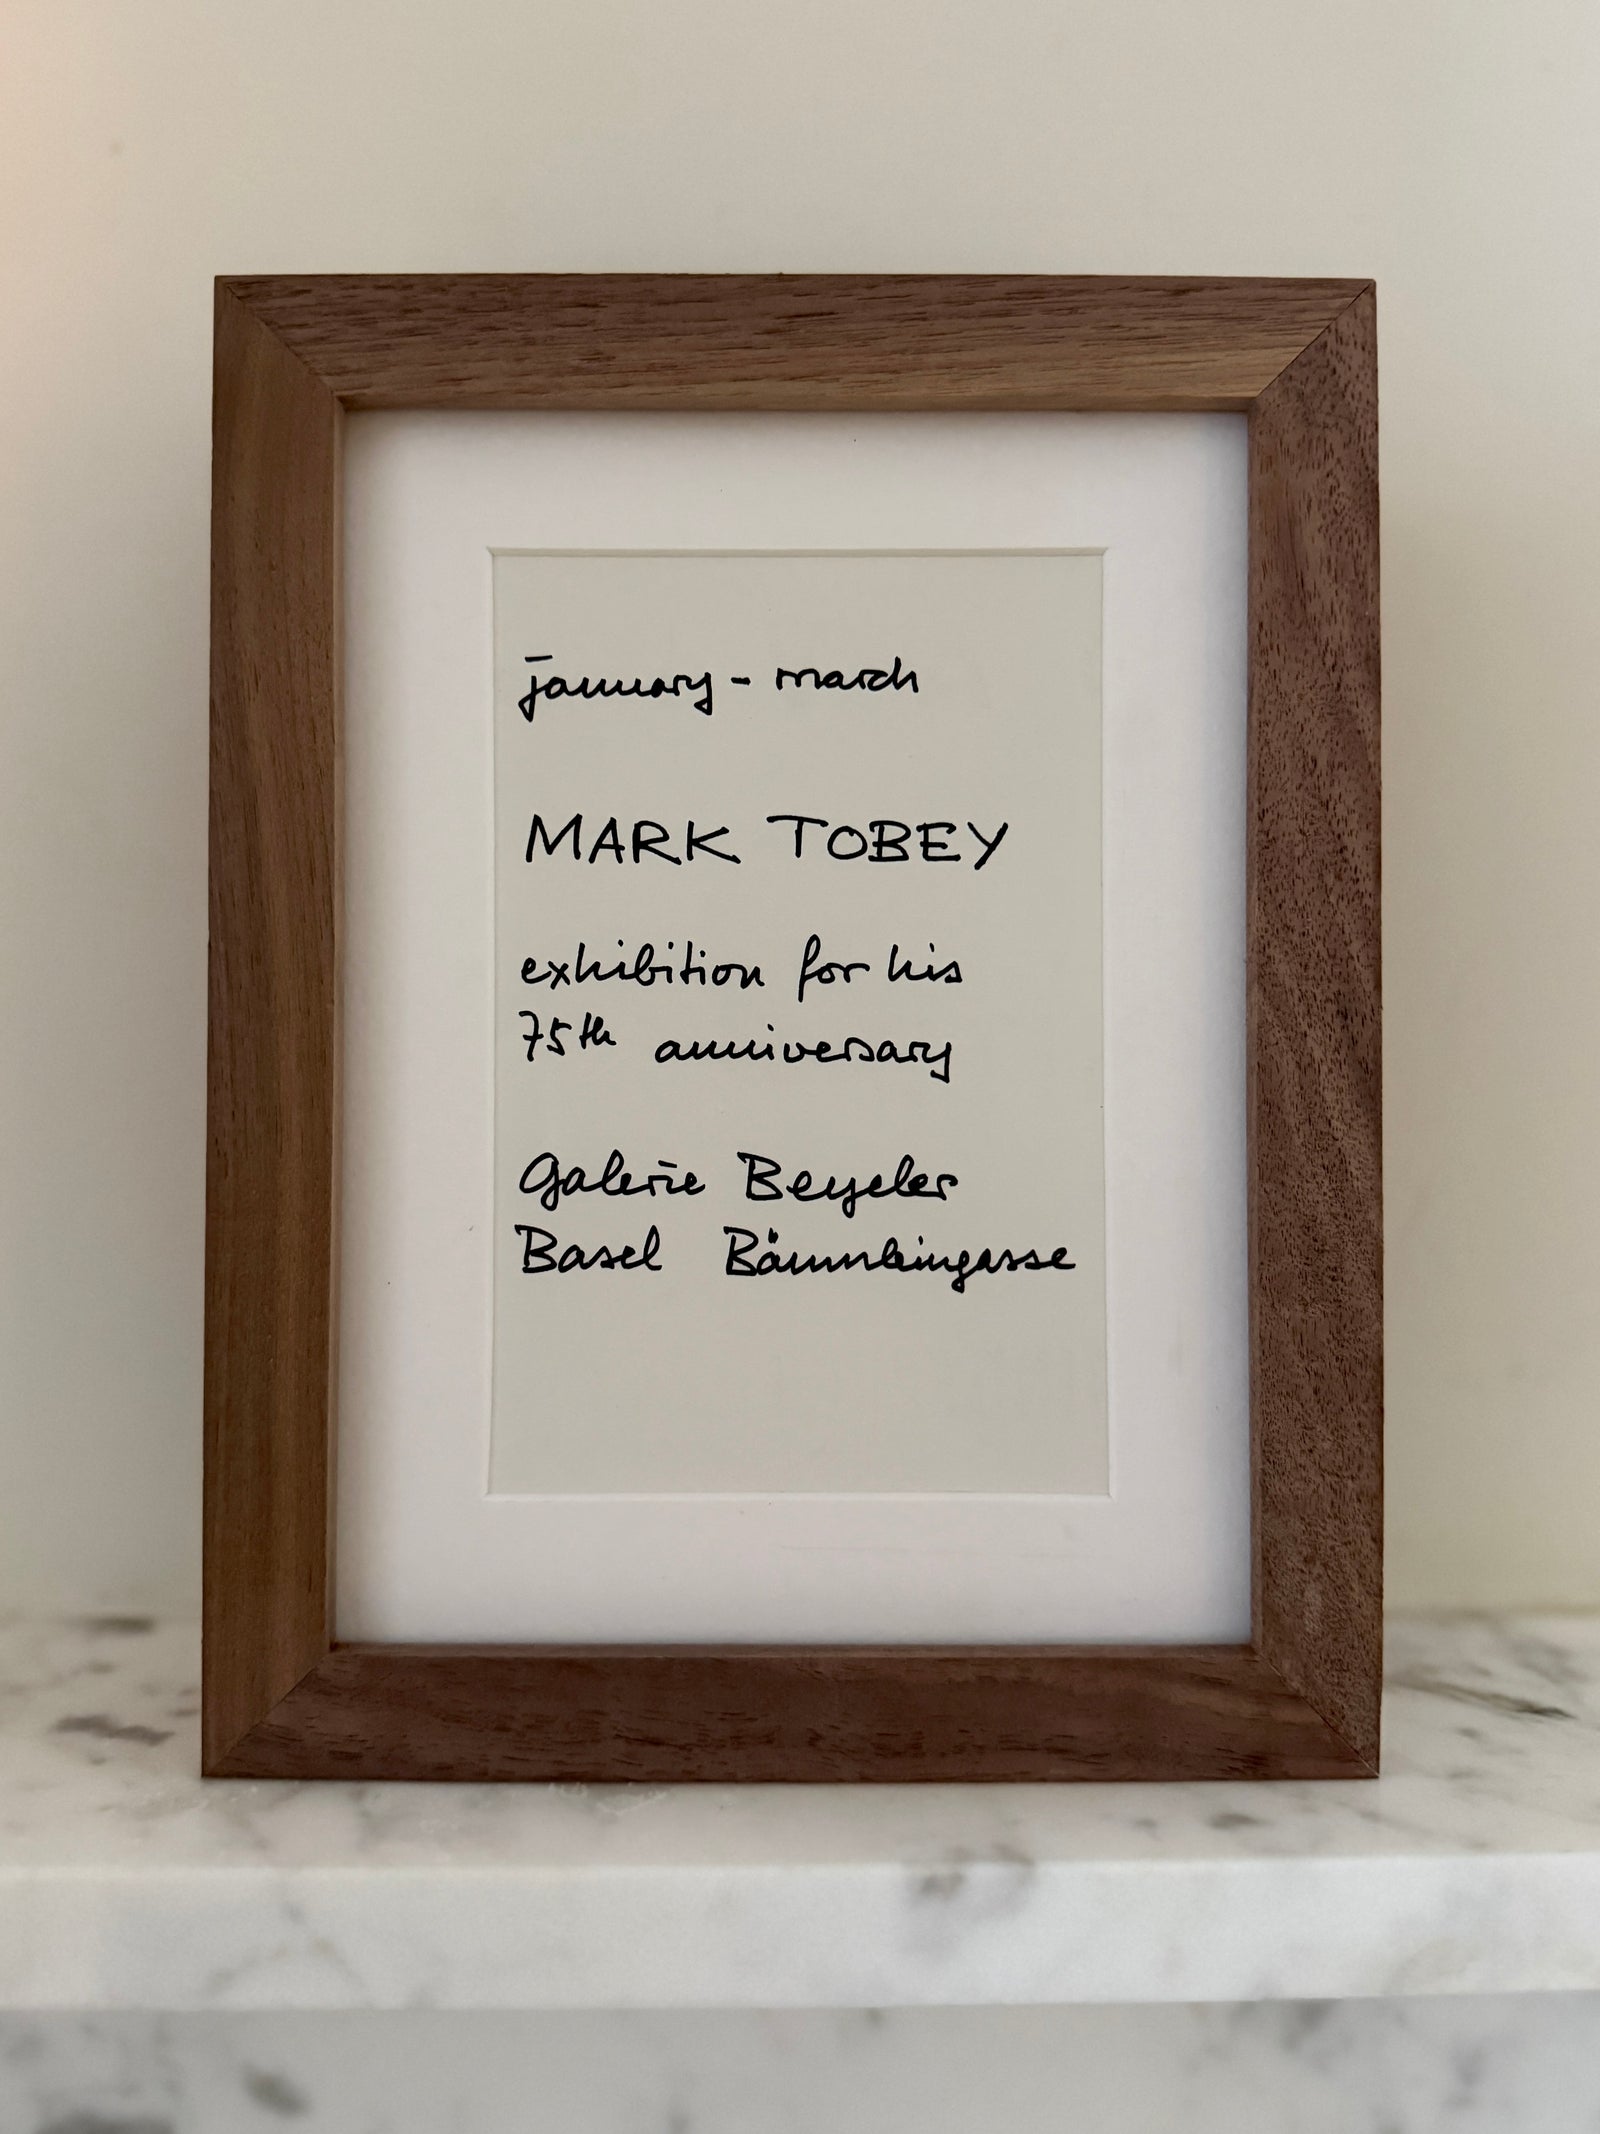 january - march
MARK TOBEY
exhibition for his
75th anniversary
Galerie Beyeler
Basel Bäumleingasse